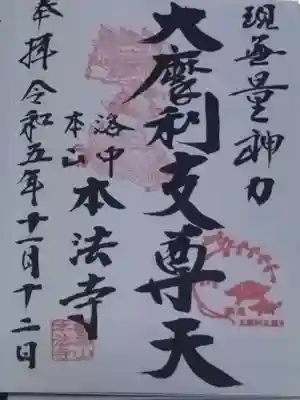 現無量神力
大摩利支尊天
洛中
本山
本法寺
奉拝 令和五年十一月十二日